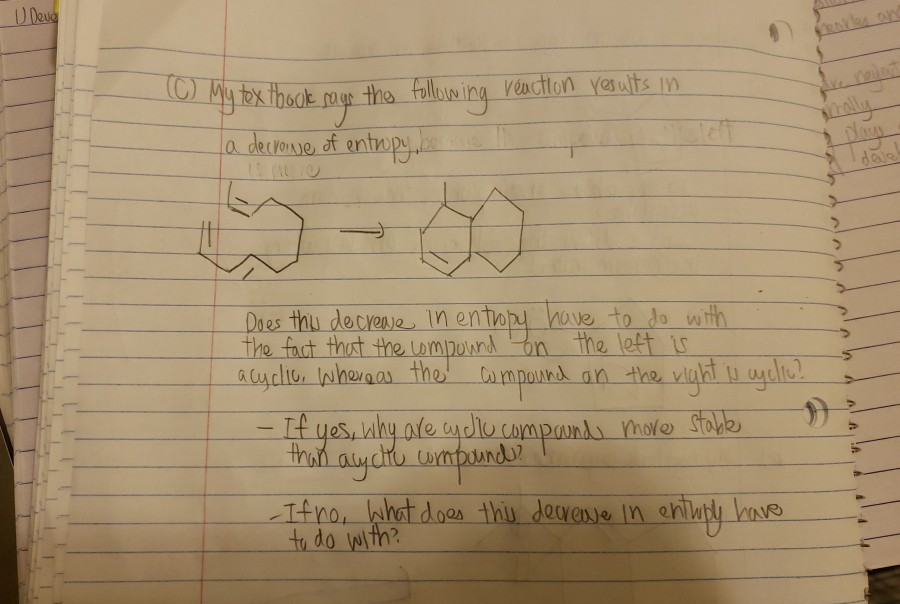 1) Deve
(C) My textbook says the following reaction results in
a decrease of entropy,
Does this decrease in entropy have to do with
the fact that the compound on the left is
acyclic, whereas the compound on the right is cyclic?
- If yes, why are cyclic compounds more stable
than acyclic compounds?
- If no, what does this decrease in entropy have
to do with?